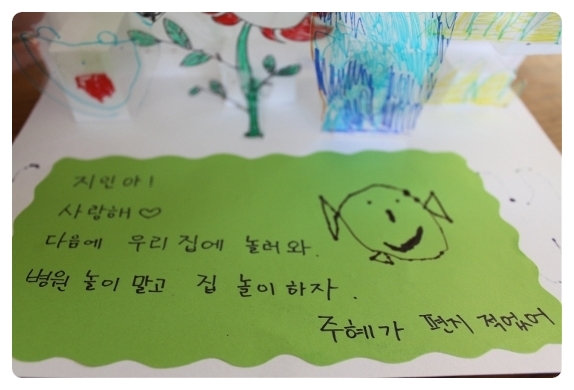 지인아!
사랑해♡
다음에 우리 집에 놀러와.
병원 놀이 말고 집 놀이 하자.
주혜가 편지 적었어